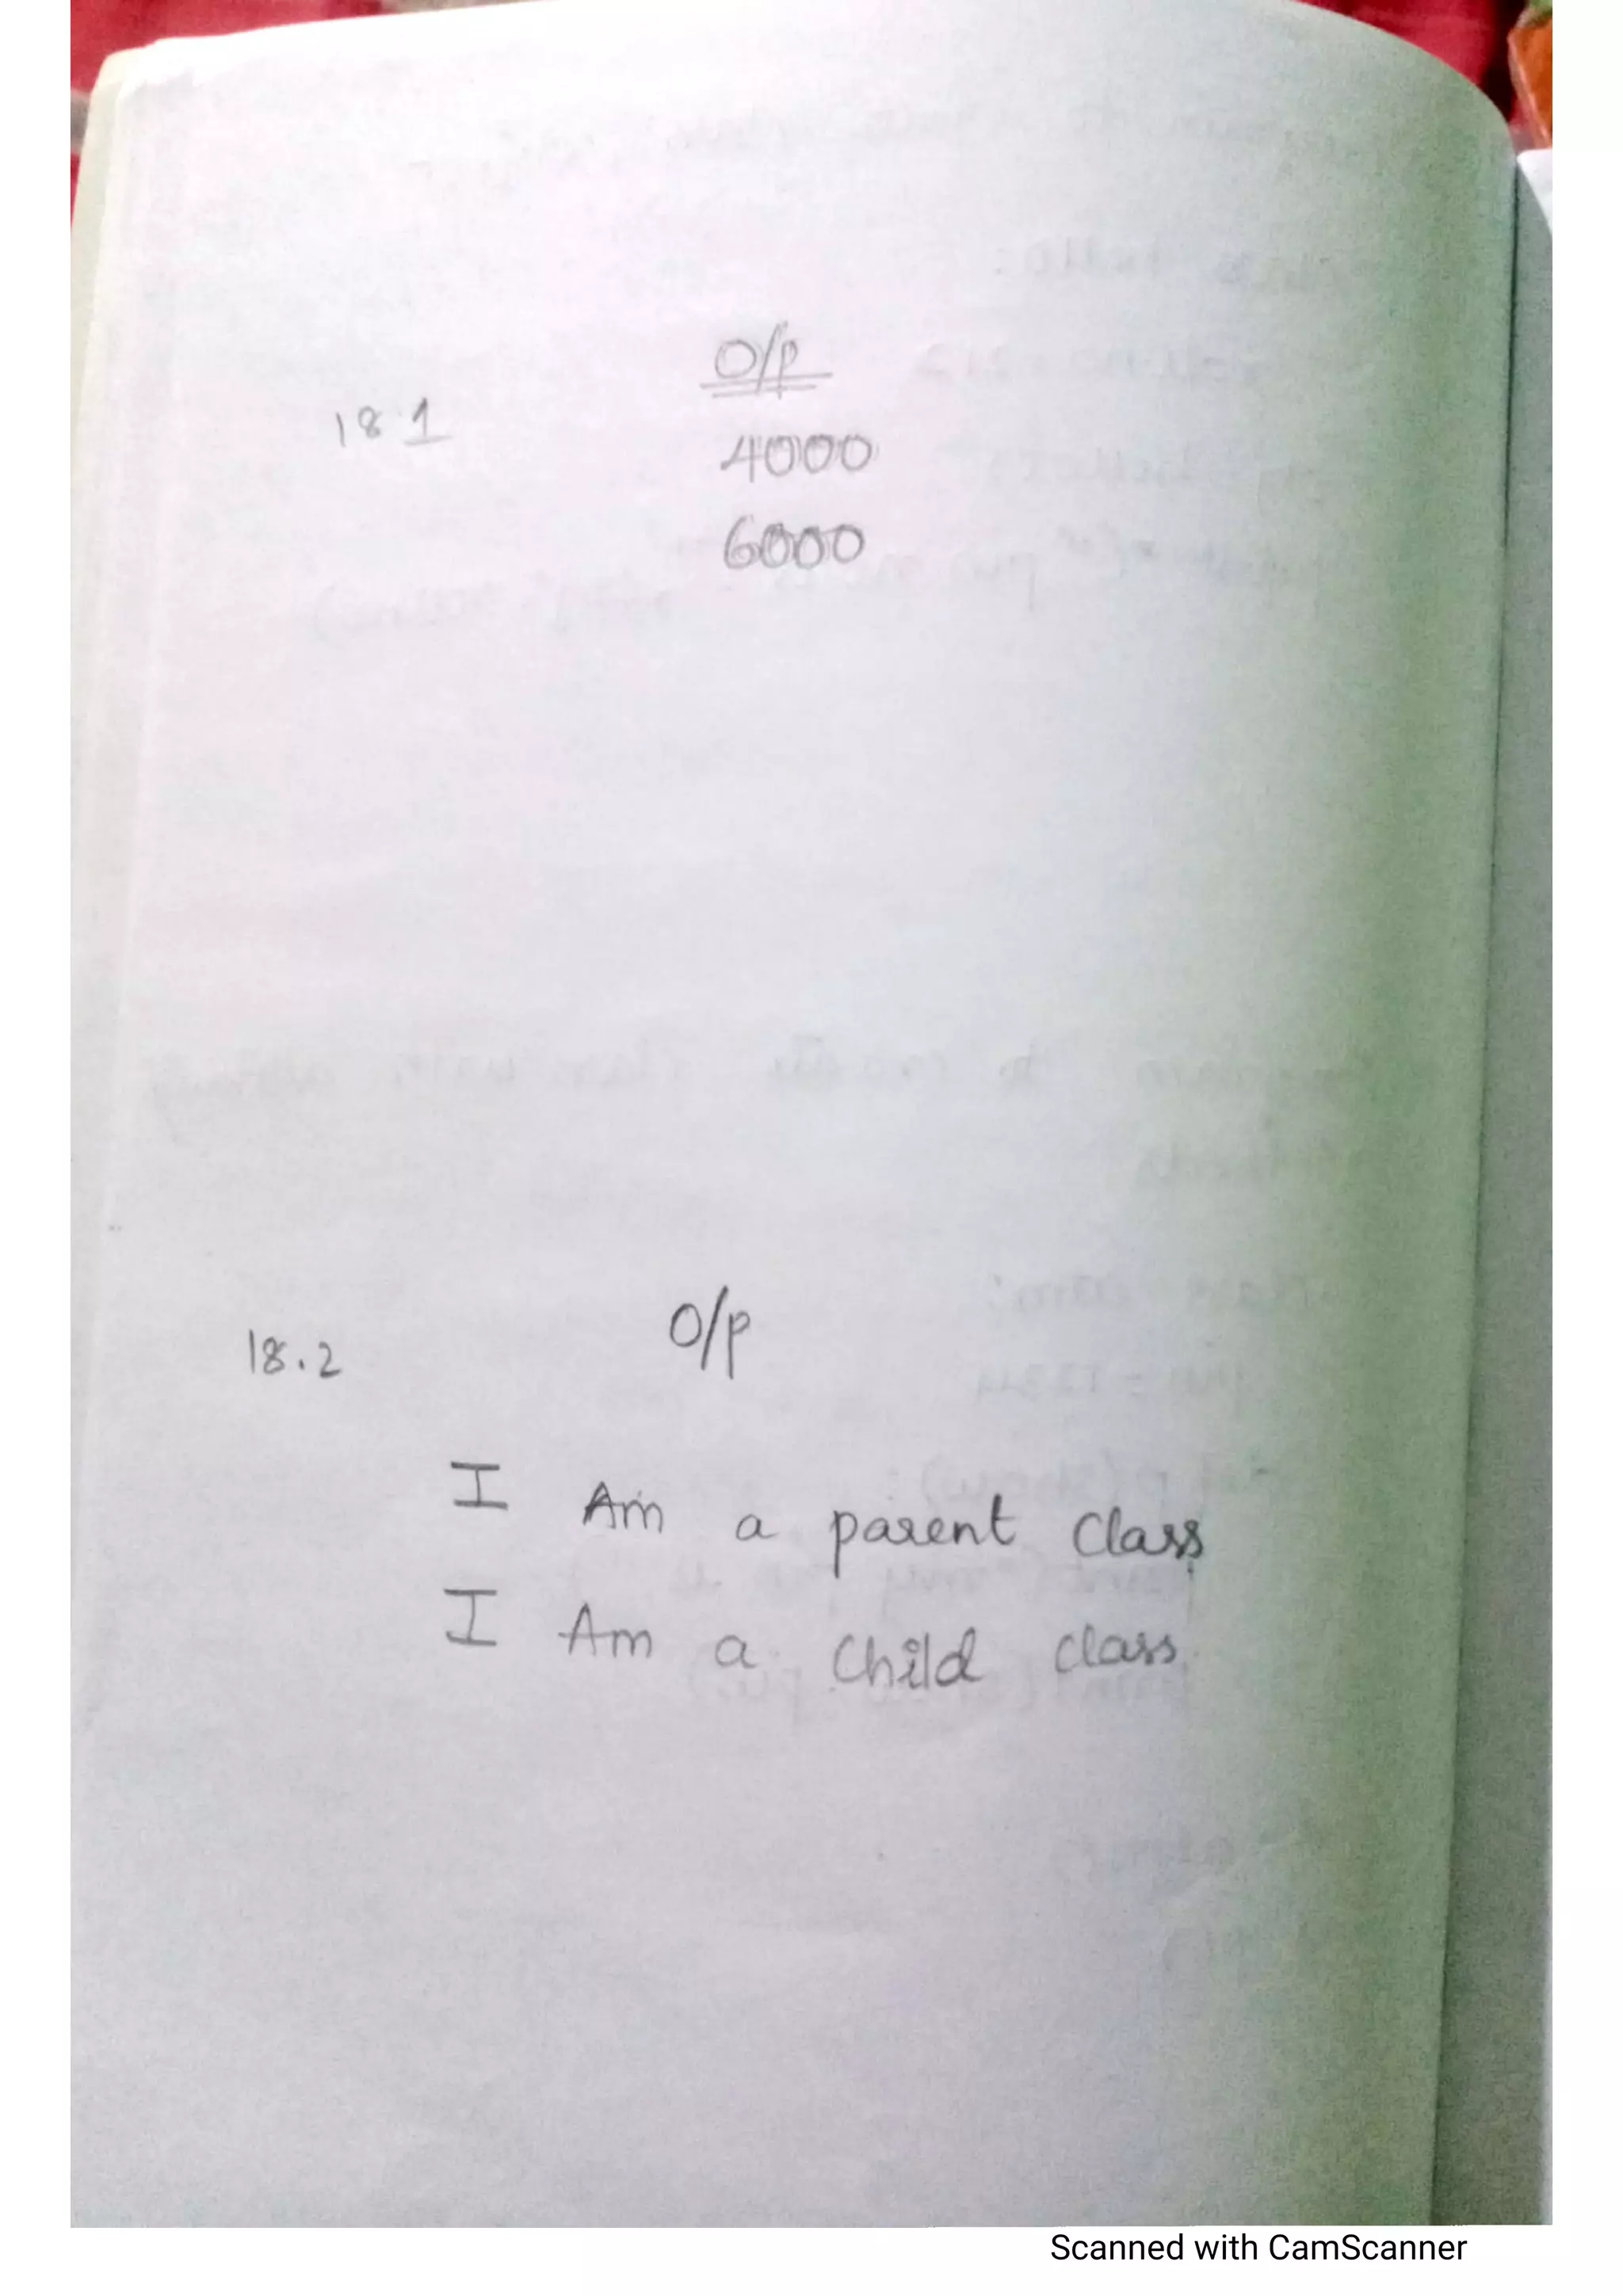 O/P
18.1
4000
6000
18.2
O/P
I Am a parent Class
I Am a Child class
Scanned with CamScanner